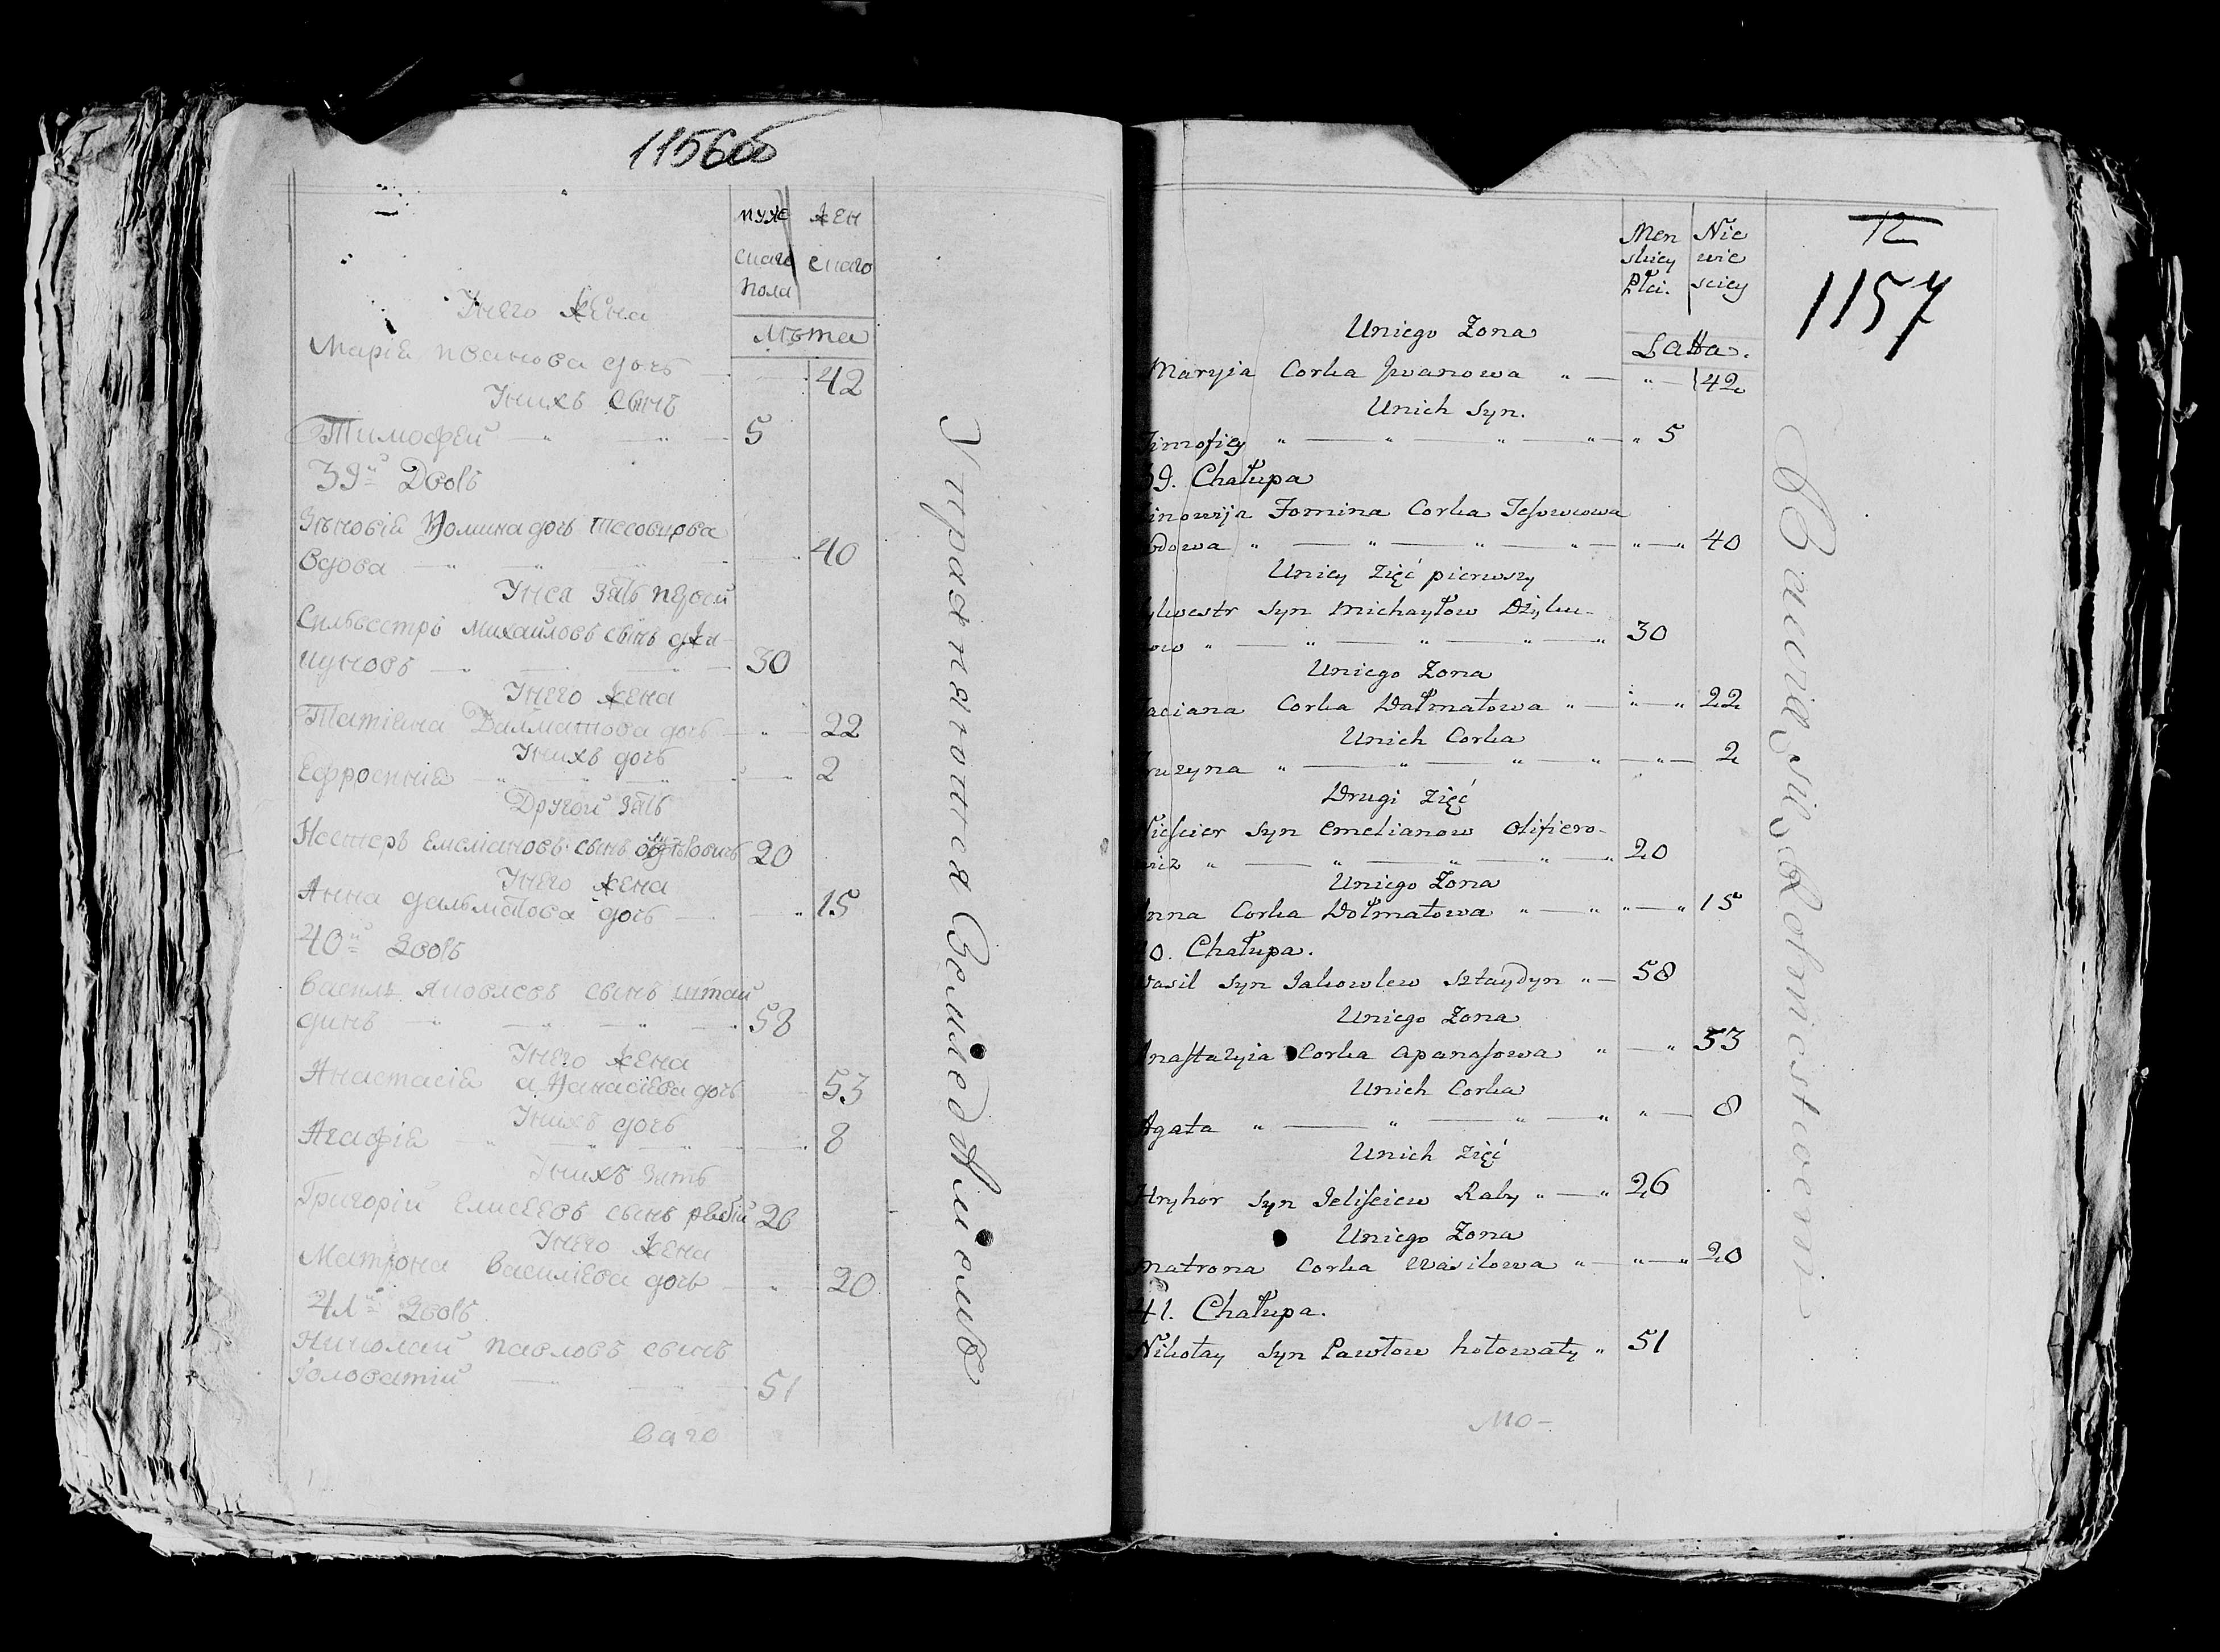 1156об
муж жен
скаго скаго
пола
Лѣта
Унего жена
Марія иванова дочь 42
Унихъ сынъ
Тимофей 5
39й Дворъ
Зѣновія Фомина дочь
вдова 40
Унея зять первой
Сильвестръ михайловъ сынъ джи-
куновъ 30
Унего жена
Татіяна Далматова дочь 22
Унихъ дочь
Ефросинія 2
Другой зять
Нестеръ емеліановъ сынъ 20
Унего жена
Анна далматова дочь 15
40й Дворъ
василь яковлевъ сынъ штай
динъ 58
Унего жена
Анастасія афанасіева дочь 53
Унихъ дочь
Агафія 8
Унихъ зять
Григорій елисеевъ сынъ рабій 26
Унего жена
Матрона василіева дочь 20
41й Дворъ
Николай павловъ сынъ
Головатій 51
Упражняются Земледѣліемъ
12
1157
Men Nie
skiey wie
Płci. sciey
Latta.
Uniego Zona
Maryia Corka Jwanowa 42
Unich Syn.
Timofiey 5
39. Chałupa
inowija Fomina Corka
dowa 40
Uniey Zięć pierwszy
ylwestr Syn Michayłow Dżyku-
now 30
Uniego Zona
Taciana Corka Dałmatowa 22
Unich Corka
ruzyna 2
Drugi Zięć
Niescier Syn Emelianow Olifiero-
wicz 20
Uniego Zona
Anna Corka Dołmatowa 15
40. Chałupa.
Wasil Syn Jakowlew Sztaydyn 58
Uniego Zona
Anastazyia Corka Apanasowa 53
Unich Corka
Agata 8
Unich Zięć
Hryhor Syn Jelisieiew Raby 26
Uniego Zona
Matrona Corka Wasilowa 20
41. Chałupa.
Nikołay Syn Pawłow hołowaty 51
Bawią się Rolnictwem